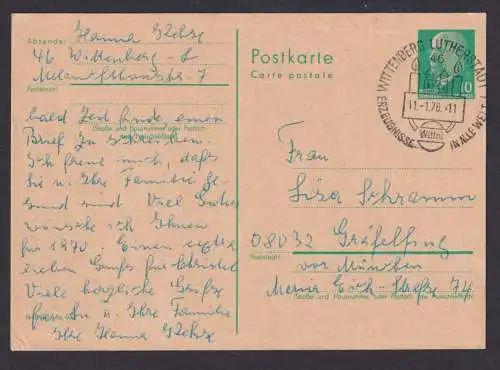 Absender: Hanna Klebze
46 Wittenberg - L
Melanchthonstr. 7
Postkarte
Carte postale
WITTENBERG LUTHERSTADT 1
46
11.-1.76.-11
Wittol
ERZEUGNISSE IN ALLE WELT
10
(Postleitzahl)
bald Zeit finde einen
(Straße und Hausnummer oder Postfach
Brief zu schreiben.
Ich freue mich, daß
Sie u. Ihre Familie ge
sund sind. Viel Gutes
wünsche ich Ihnen
für 1970. Einen
lichen Gruß für
Viele herzliche Grüße
Ihnen u. Ihre Familie
Ihre Hanna
Frau
Lisa Schramm
08032 Gräfelfing
(Postleitzahl)
vor München
Maria Eich-Straße 74
(Straße und Hausnummer oder Postfach